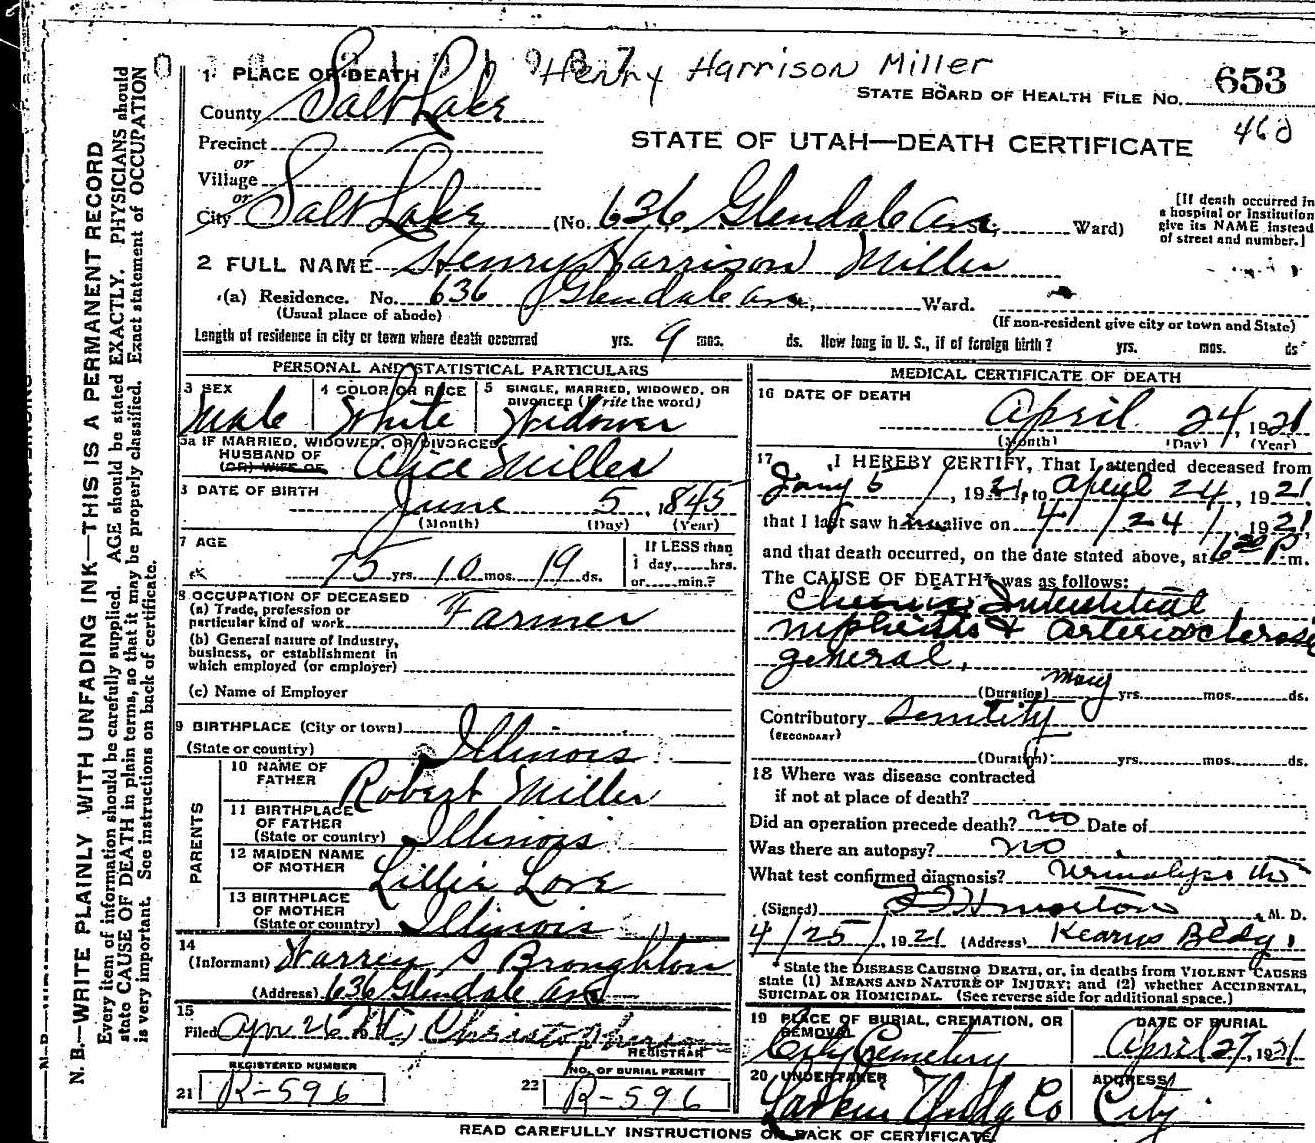 Henry Harrison Miller
STATE BOARD OF HEALTH FILE NO. 653
460
STATE OF UTAH—DEATH CERTIFICATE
1 PLACE OF DEATH
County Salt Lake
Precinct
or
Village
or
City Salt Lake (No. 636 Glendale Ave St., Ward)
[If death occurred in
a hospital or institution
give its NAME instead
of street and number.]
2 FULL NAME Henry Harrison Miller
(a) Residence. No. 636 Glendale ave, Ward.
(Usual place of abode) (If non-resident give city or town and State)
Length of residence in city or town where death occurred yrs. 9 mos. ds. How long in U. S., if of foreign birth? yrs. mos. ds
PERSONAL AND STATISTICAL PARTICULARS
3 SEX 4 COLOR OR RACE 5 SINGLE, MARRIED, WIDOWED, OR
DIVORCED (Write the word)
Male White Widower
5a IF MARRIED, WIDOWED, OR DIVORCED
HUSBAND OF
(OR) WIFE OF Alice Miller
DATE OF BIRTH June 5, 1845
(Month) (Day) (Year)
7 AGE
75 yrs. 10 mos. 19 ds.
If LESS than
1 day, hrs.
or min.?
8 OCCUPATION OF DECEASED
(a) Trade, profession or
particular kind of work Farmer
(b) General nature of Industry,
business, or establishment in
which employed (or employer)
(c) Name of Employer
9 BIRTHPLACE (City or town)
(State or country) Illinois
PARENTS
10 NAME OF
FATHER Robert Miller
11 BIRTHPLACE
OF FATHER
(State or country) Illinois
12 MAIDEN NAME
OF MOTHER Lillie Love
13 BIRTHPLACE
OF MOTHER
(State or country) Illinois
14
(Informant) Warren S Broughton
(Address) 636 Glendale Ave
15
Filed Apr 26
REGISTRAR
REGISTERED NUMBER
21 R-596
NO. OF BURIAL PERMIT
22 R-596
MEDICAL CERTIFICATE OF DEATH
16 DATE OF DEATH
April 24, 1921
(Month) (Day) (Year)
17 I HEREBY CERTIFY, That I attended deceased from
Jany 5, 1921, to April 24, 1921
that I last saw him alive on 4/24/, 1921
and that death occurred, on the date stated above, at 6 30 P. m.
The CAUSE OF DEATH* was as follows:
Chronic Interstitial
nephritis & arteriosclerosis
general,
(Duration) many yrs. mos. ds.
Contributory Senility
(SECONDARY)
(Duration) yrs. mos. ds.
18 Where was disease contracted
if not at place of death?
Did an operation precede death? no Date of
Was there an autopsy? no
What test confirmed diagnosis? Urinalysis
(Signed) M. D.
4/25/, 1921 (Address) Kearns Bldg.
* State the DISEASE CAUSING DEATH, or, in deaths from VIOLENT CAUSES
state (1) MEANS AND NATURE OF INJURY; and (2) whether ACCIDENTAL,
SUICIDAL OR HOMICIDAL. (See reverse side for additional space.)
19 PLACE OF BURIAL, CREMATION, OR
REMOVAL
City Cemetery
DATE OF BURIAL
April 27, 1921
20 UNDERTAKER
Larkin Undg Co
ADDRESS
City
READ CAREFULLY INSTRUCTIONS ON BACK OF CERTIFICATE
N. B.—WRITE PLAINLY WITH UNFADING INK—THIS IS A PERMANENT RECORD
Every item of information should be carefully supplied. AGE should be stated EXACTLY. PHYSICIANS should
state CAUSE OF DEATH in plain terms, so that it may be properly classified. Exact statement of OCCUPATION
is very important. See instructions on back of certificate.